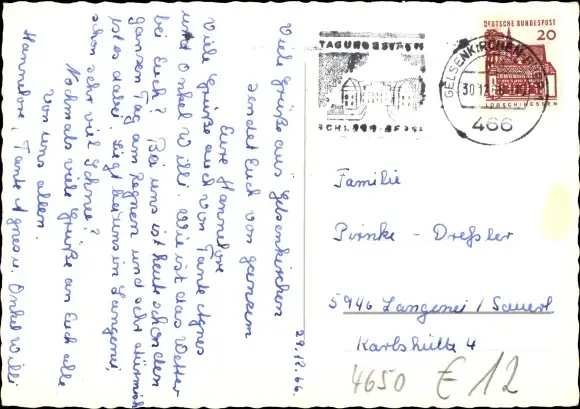 29.12.66.
Viele Grüße aus Gelsenkirchen
sendet Euch von ganzem
Eure Hannelore
Viele Grüße auch von Tante Agnes
und Onkel Willi. Wie ist das Wetter
bei Euch? Bei uns ist heute schon den
ganzen Tag am Regnen und sehr stürmisch
ist es dabei. Liegt bei uns in Langenei,
schon sehr viel Schnee?
Nochmals viele Grüße an Euch alle
von uns allen.
Hannelore, Tante Agnes u. Onkel Willi
TAGUNGSSTÄTTE
SCHLOSS BERGE
GELSENKIRCHEN
30.12.66
466
DEUTSCHE BUNDESPOST
20
LORSCH/HESSEN
Familie
Pirnke - Dreßler
5946 Langenei / Sauerl
Karlshütte 4
4650 € 12